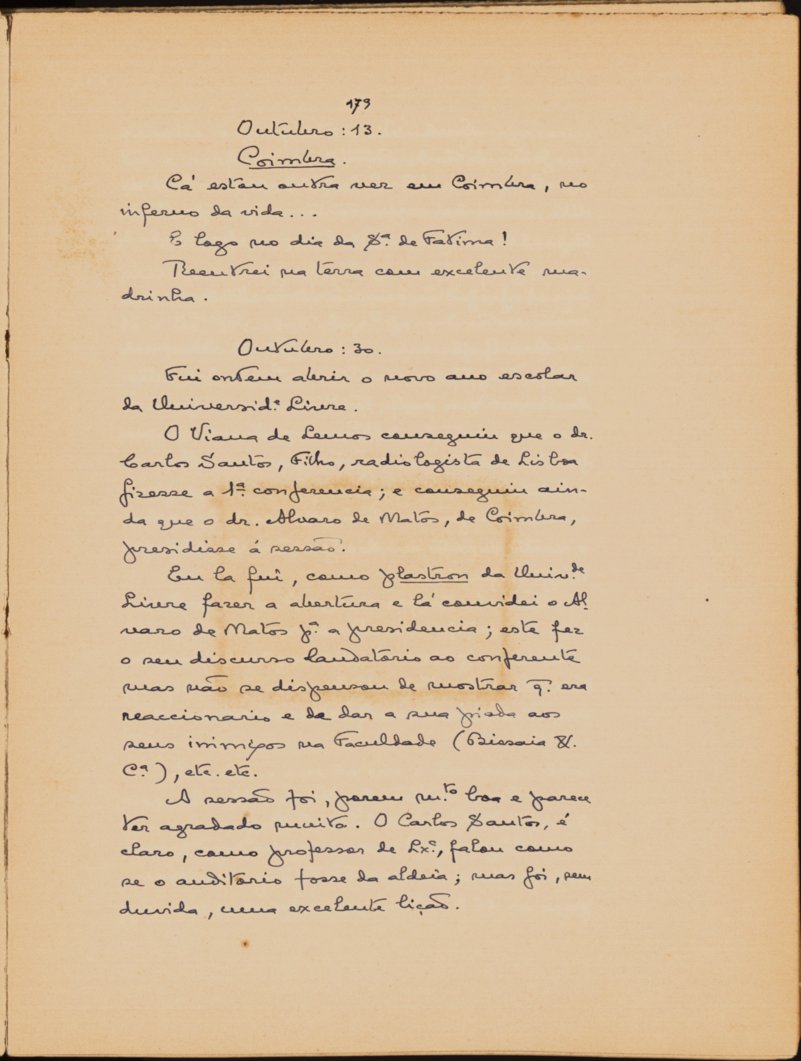 179
Outubro : 13.
Coimbra.
Cá estou outra vez em Coimbra, no
inferno da vida...
E logo no dia da Sª. de Fatima!
Reentrei na terra com excelente ma-
drinha.
Outubro : 30.
Fui ontem abrir o novo ano escolar
da Universid.ᵉ Livre.
O Viana de Lemos conseguiu que o dr.
Carlos Santos, Filho, radiologista de Lisboa
fizesse a 1ª. conferencia; e conseguiu ain-
da que o dr. Alvaro de Matos, de Coimbra,
presidisse á sessão.
Eu la fui, como plastron da Univ.ᵈᵉ
Livre fazer a abertura e lá convidei o Al-
varo de Matos pª. a presidencia; este fez
o seu discurso laudatório ao conferente
mas não se dispensou de mostrar q̃. era
reaccionario e de dar a sua piada aos
seus inimigos na Faculdade (Bissaia &.
Cª.), etc. etc.
A sessão foi, porem m.ᵗᵒ boa e parece
ter agradado muito. O Carlos Santos, é
claro, como professor de Lxª., falou como
se o auditorio fosse da aldeia; mas foi, sem
duvida, uma excelente lição.